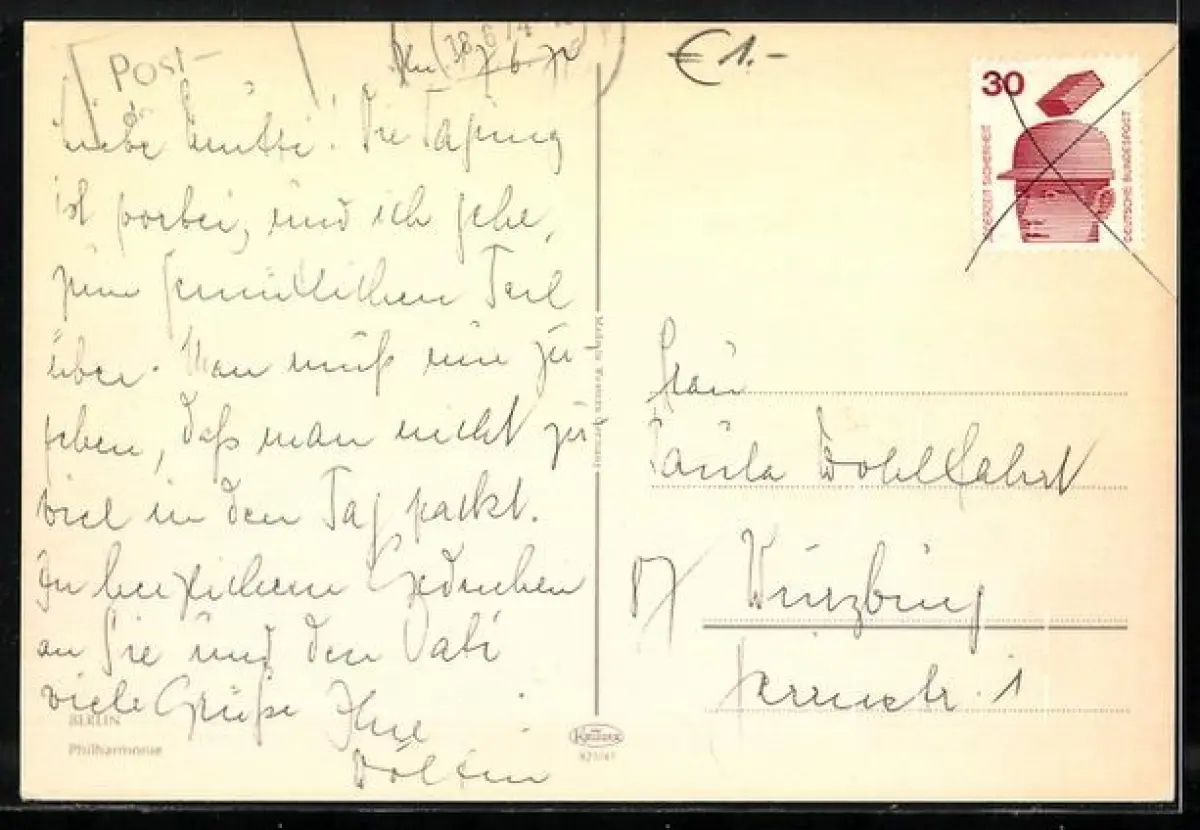 Post-
€ 1.-
30
JEDERZEIT SICHERHEIT
DEUTSCHE BUNDESPOST
Liebe Mutti! Die Tagung
ist vorbei, und ich gehe,
zum gemütlichen Teil
über. Man muß nur zu-
geben, daß man nicht zu
viel in den Tag packt.
In herzlichem Gedenken
an Sie und den Vati
viele Grüße Ihre
BERLIN
Philharmonie
Krüger
Frau
Paula Wohlfahrt
87 Würzburg
1